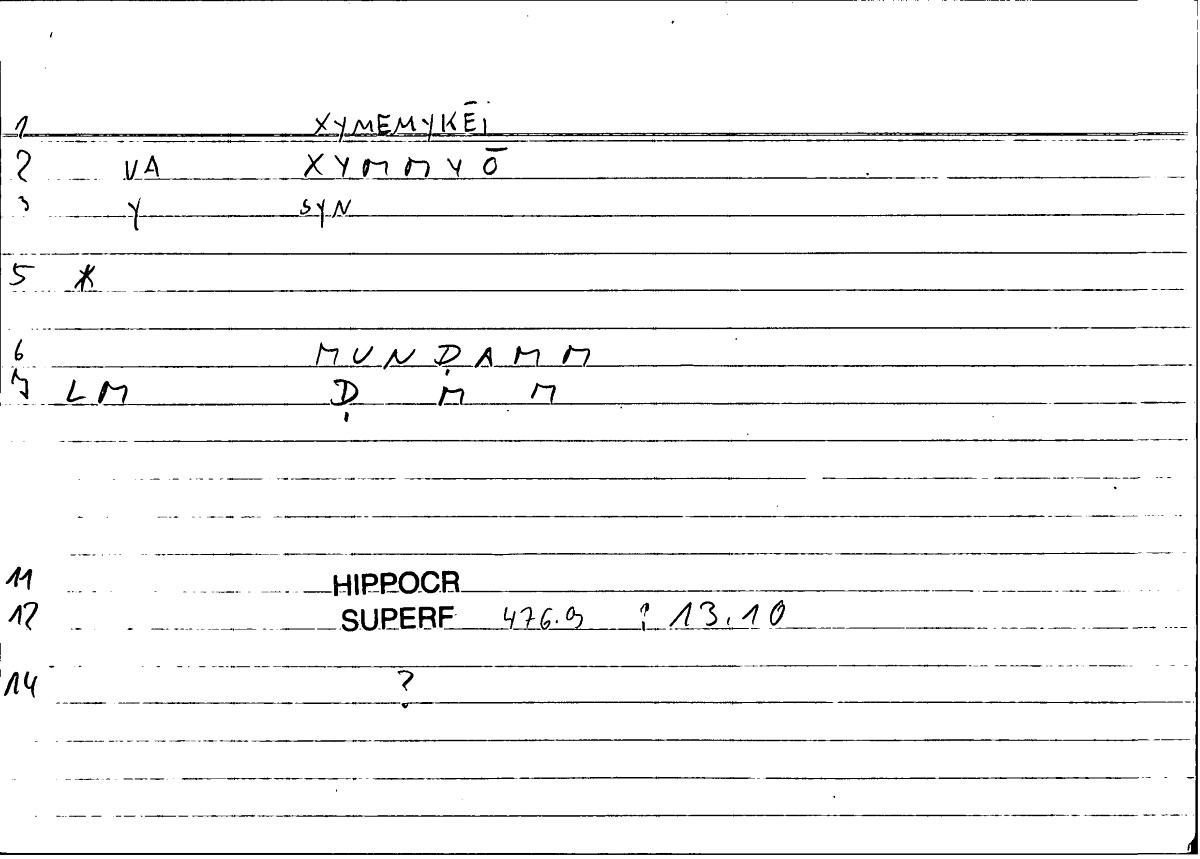 1 XYMEMYKĒI
2 VA XYMMYŌ
3 Y SYN
5 *
6 MUNḌAMM
7 LM Ḍ M M
11 HIPPOCR
12 SUPERF 476.9 : 13.10
14 ?